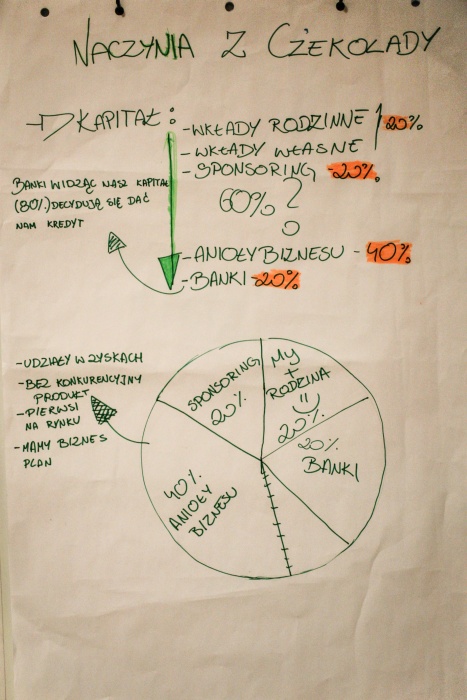 NACZYNIA Z CZEKOLADY
KAPITAŁ:
-WKŁADY RODZINNE
-WKŁADY WŁASNE
20%
-SPONSORING -20%
60% ?
-ANIOŁY BIZNESU - 40%
-BANKI 20%
BANKI WIDZĄC NASZ KAPITAŁ
(80%) DECYDUJĄ SIĘ DAĆ
NAM KREDYT
-UDZIAŁY W ZYSKACH
-BEZ KONKURENCYJNY
PRODUKT
-PIERWSI
NA RYNKU
-MAMY BIZNES
PLAN
SPONSORING
20%
MY
+
RODZINA
20%
20%
BANKI
40%
ANIOŁY
BIZNESU